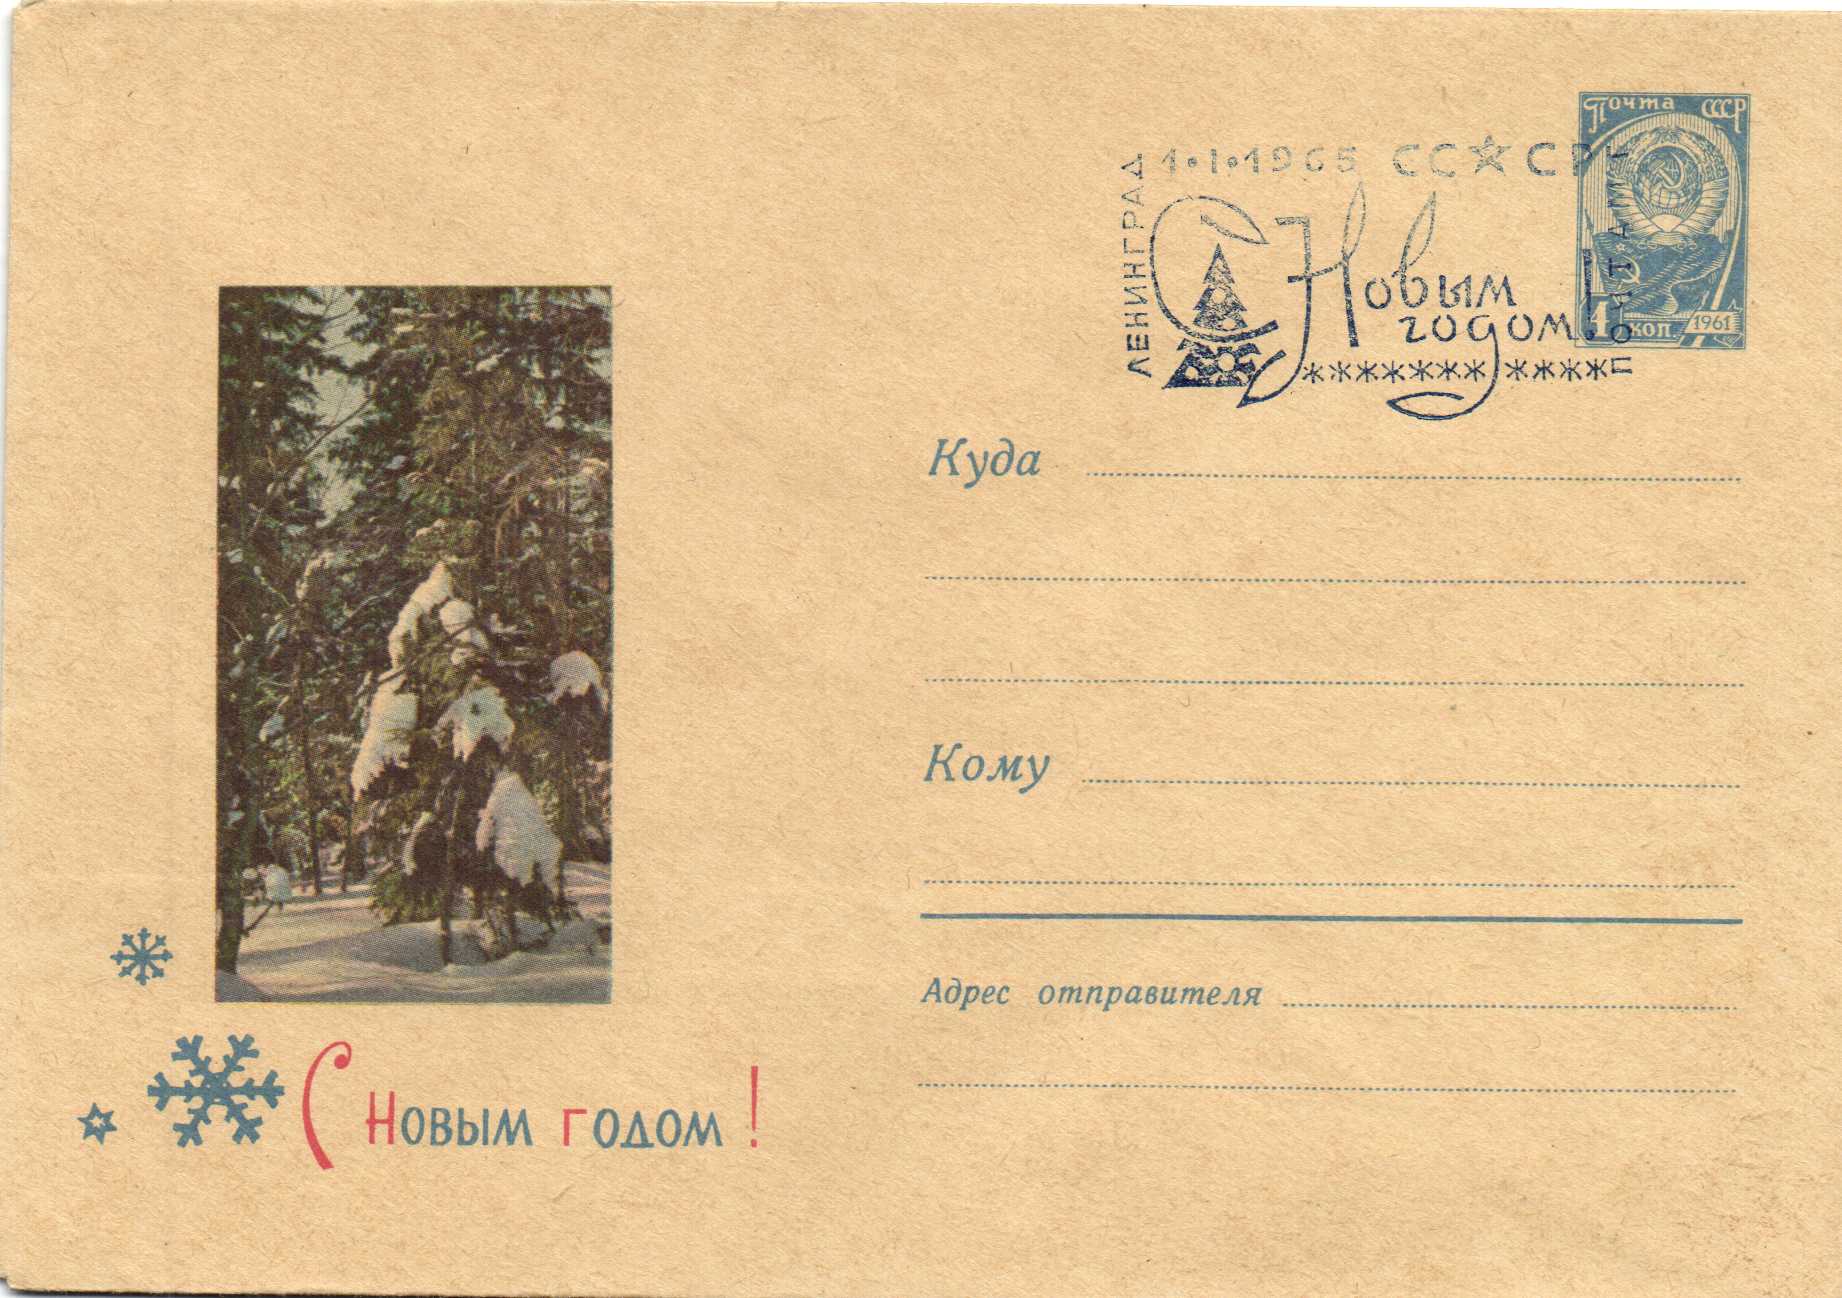 Почта СССР
4 коп 1961
1•I•1965 СС☆СР
ЛЕНИНГРАД
ПОЧТАМТ
С Новым
годом!
Куда
Кому
Адрес отправителя
С Новым годом!